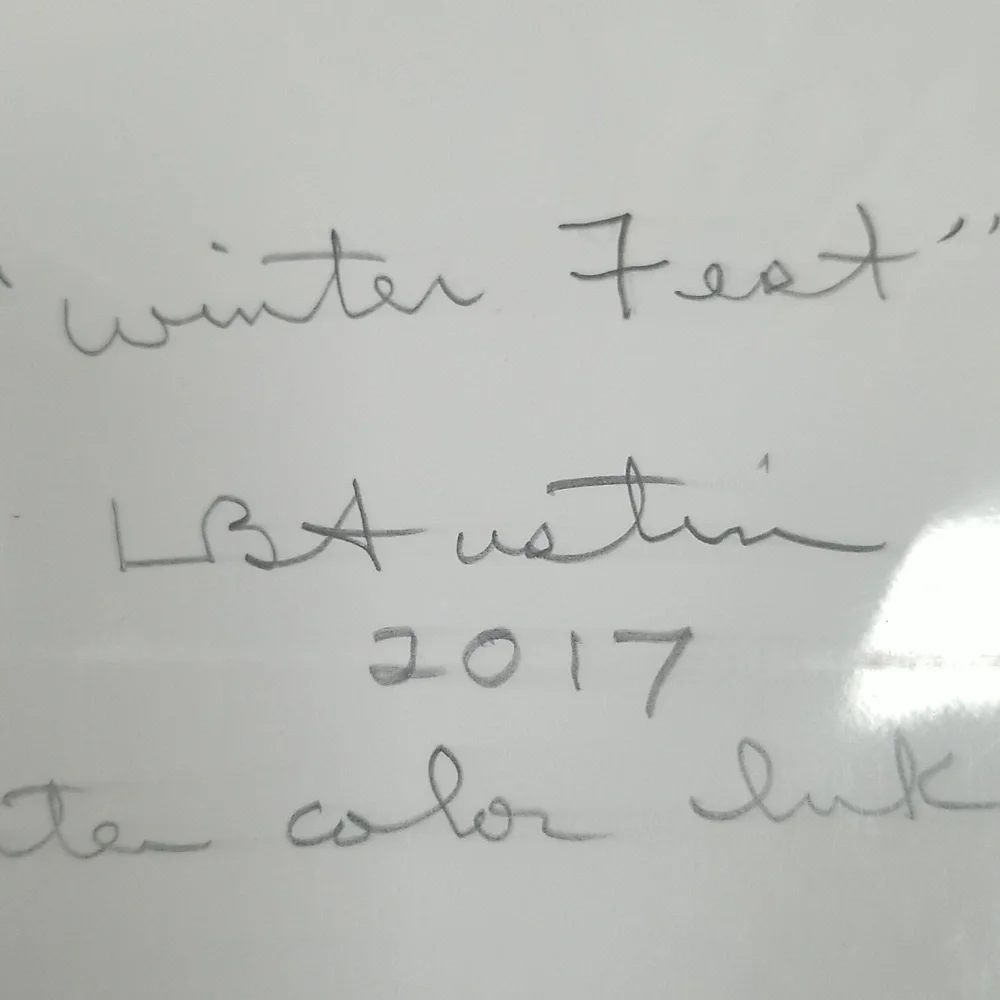 "Winter Fest"
LBAustin
2017
ter color Ink